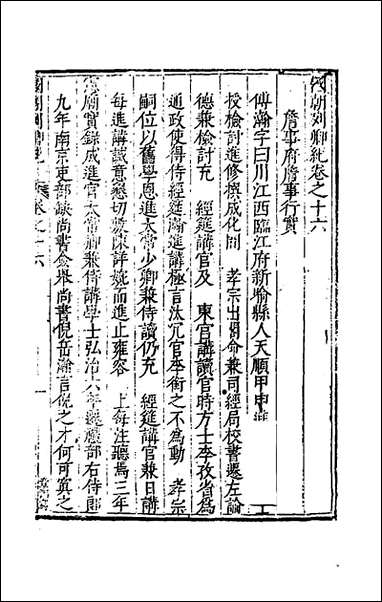 國朝列卿紀卷之十六
詹事府詹事行實
傅瀚字曰川江西臨江府新喻縣人天順甲申進士
授檢討進修撰成化間　孝宗出閤命兼司經局校書遷左諭
德兼檢討充　經筵講官及　東宮講讀官時方士李孜省為
通政使得侍經筵瀚進講極言汰冗官李銜之不為動　孝宗
嗣位以舊學恩進太常少卿兼侍讀仍充　經筵講官兼日講
每進講誠意懇切敷陳詳婉而進止雍容　上每注聽焉三年
憲廟實錄成進官太常卿兼侍講學士弘治六年遷禮部右侍郎
九年南京吏部缺尚書僉舉尚書倪岳瀚言倪之才何可寘之
國朝列卿紀　卷之十六